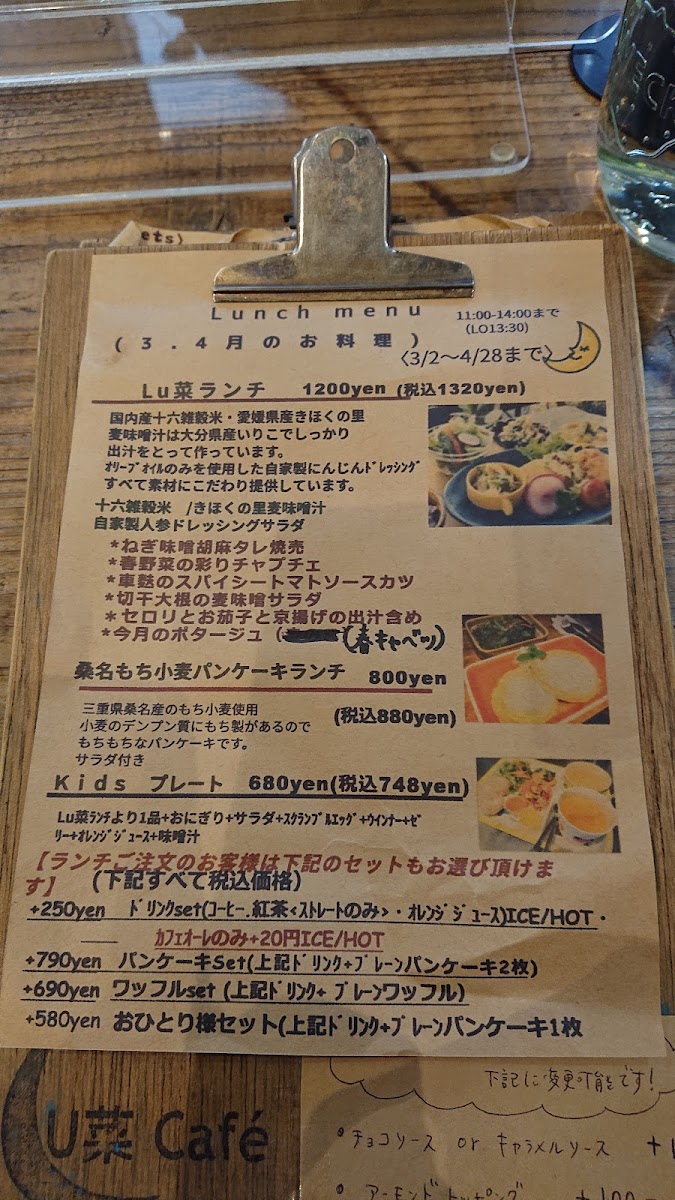 ets)
Lunch menu
11:00-14:00まで
(LO13:30)
(3.4月のお料理)
〈3/2～4/28まで〉
Lu菜ランチ 1200yen (税込1320yen)
国内産十六雑穀米・愛媛県産きほくの里
麦味噌汁は大分県産いりこでしっかり
出汁をとって作っています。
ｵﾘｰﾌﾞｵｲﾙのみを使用した自家製にんじんﾄﾞﾚｯｼﾝｸﾞ
すべて素材にこだわり提供しています。
十六雑穀米 /きほくの里麦味噌汁
自家製人参ドレッシングサラダ
*ねぎ味噌胡麻タレ焼売
*春野菜の彩りチャプチェ
*車麩のスパイシートマトソースカツ
*切干大根の麦味噌サラダ
*セロリとお茄子と京揚げの出汁含め
*今月のポタージュ (春キャベツ)
桑名もち小麦パンケーキランチ 800yen
(税込880yen)
三重県桑名産のもち小麦使用
小麦のデンプン質にもち製があるので
もちもちなパンケーキです。
サラダ付き
Kids プレート 680yen(税込748yen)
Lu菜ﾗﾝﾁより1品+おにぎり+サラダ+ｽｸﾗﾝﾌﾞﾙｴｯｸﾞ+ウインナー+ゼ
リー+オレンジジュース+味噌汁
【ランチご注文のお客様は下記のセットもお選び頂けま
す】 (下記すべて税込価格)
+250yen ﾄﾞﾘﾝｸset(ｺｰﾋｰ.紅茶<ｽﾄﾚｰﾄのみ>・ｵﾚﾝｼﾞｼﾞｭｰｽ)ICE/HOT・
ｶﾌｪｵｰﾚのみ+20円ICE/HOT
+790yen パンケーキSet(上記ﾄﾞﾘﾝｸ+ﾌﾟﾚｰﾝパンケーキ2枚)
+690yen ワッフルset (上記ﾄﾞﾘﾝｸ+ ﾌﾟﾚｰﾝワッフル)
+580yen おひとり様セット(上記ﾄﾞﾘﾝｸ+ﾌﾟﾚｰﾝパンケーキ1枚
下記に変更可能です!
U菜 Café
•チョコソース or キャラメルソース
•アーモンドトッピング +100